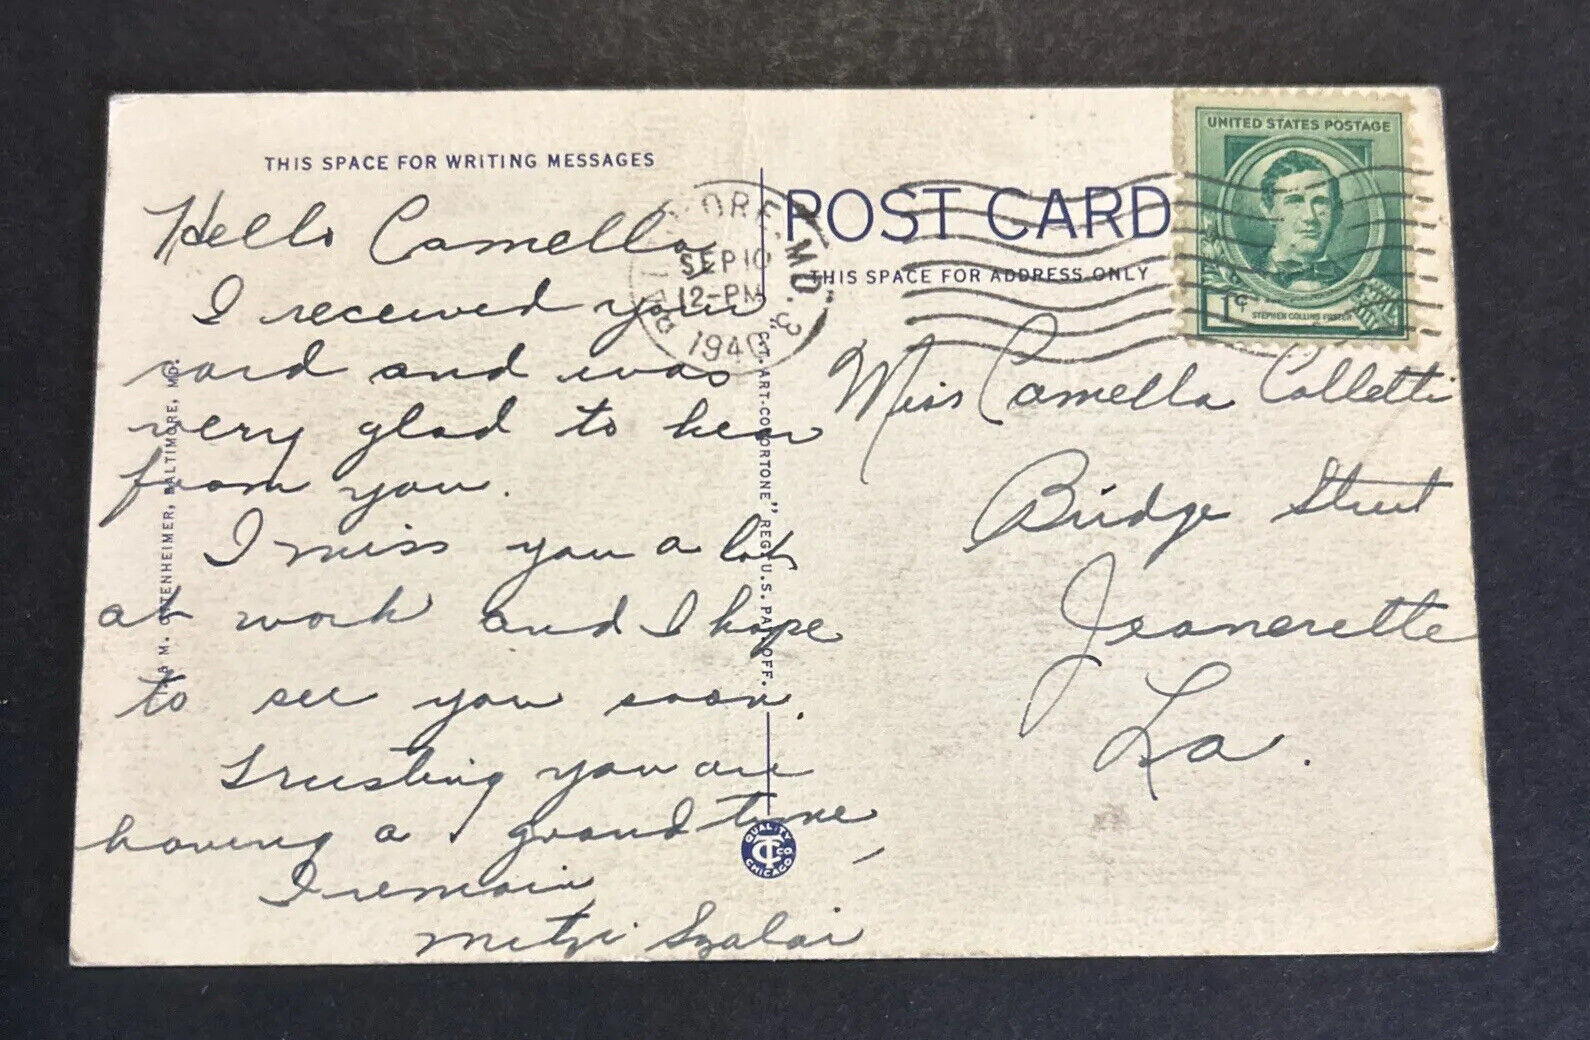 THIS SPACE FOR WRITING MESSAGES
Hello Camella,
I received your
card and was
very glad to hear
from you.
I miss you a lot
at work and I hope
to see you soon.
Trusting you are
having a grand time,
I remain
Mitzi Szalai
I & M. OTTENHEIMER, BALTIMORE, MD.
"C.T. ART-COLORTONE" REG. U.S. PAT. OFF.
QUALITY
CT CO.
CHICAGO
BALTIMORE, MD. 3
SEP 10
12-PM
1940
POST CARD
THIS SPACE FOR ADDRESS ONLY
UNITED STATES POSTAGE
1¢
STEPHEN COLLINS FOSTER
Miss Camella Colletti
Bridge Street
Jeanerette
La.